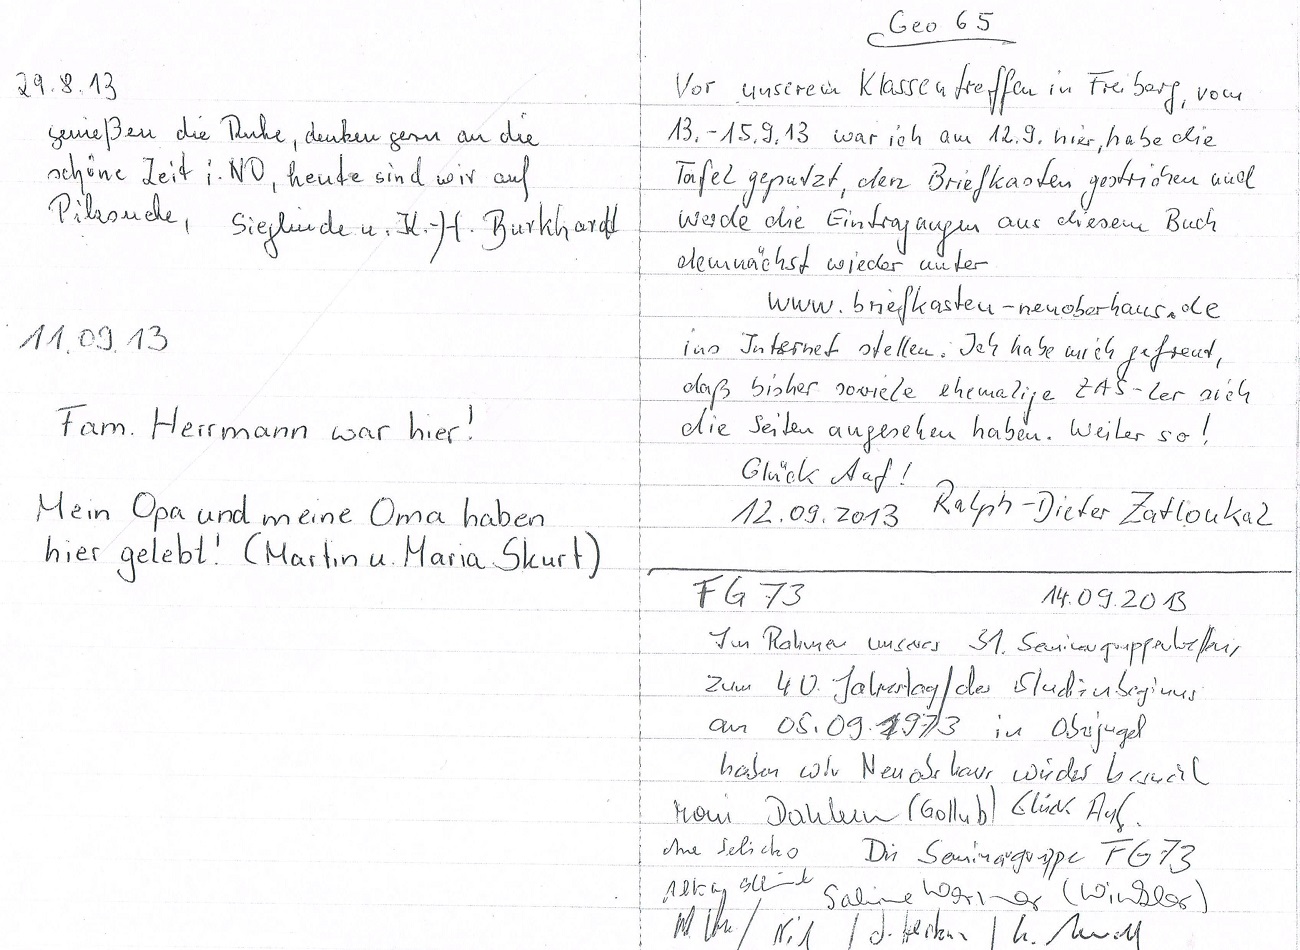 29.8.13
genießen die Ruhe, denken gern an die
schöne Zeit i. NO, heute sind wir auf
Pilzsuche, Sieglinde u. K.-H. Burkhardt
11.09.13
Fam. Herrmann war hier!
Mein Opa und meine Oma haben
hier gelebt! (Martin u. Maria Skurt)
Geo 65
Vor unserem Klassentreffen in Freiberg, vom
13.-15.9.13 war ich am 12.9. hier, habe die
Tafel geputzt, den Briefkasten gestrichen und
werde die Eintragungen aus diesem Buch
demnächst wieder unter
www.briefkasten-neuoberhaus.de
ins Internet stellen. Ich habe mich gefreut,
daß bisher soviele ehemalige ZAS-ler sich
die Seiten angesehen haben. Weiter so!
Glück Auf!
12.09.2013 Ralph-Dieter Zatloukal
FG 73 14.09.2013
Im Rahmen unseres 31. Seminargruppentreffens
zum 40. Jahrestag des Studienbeginns
am 05.09.1973 in
haben wir Neuoberhaus wieder besucht
Dahlem (Gollub) Glück Auf.
Die Seminargruppe FG 73
Sabine Werner (Winkler)